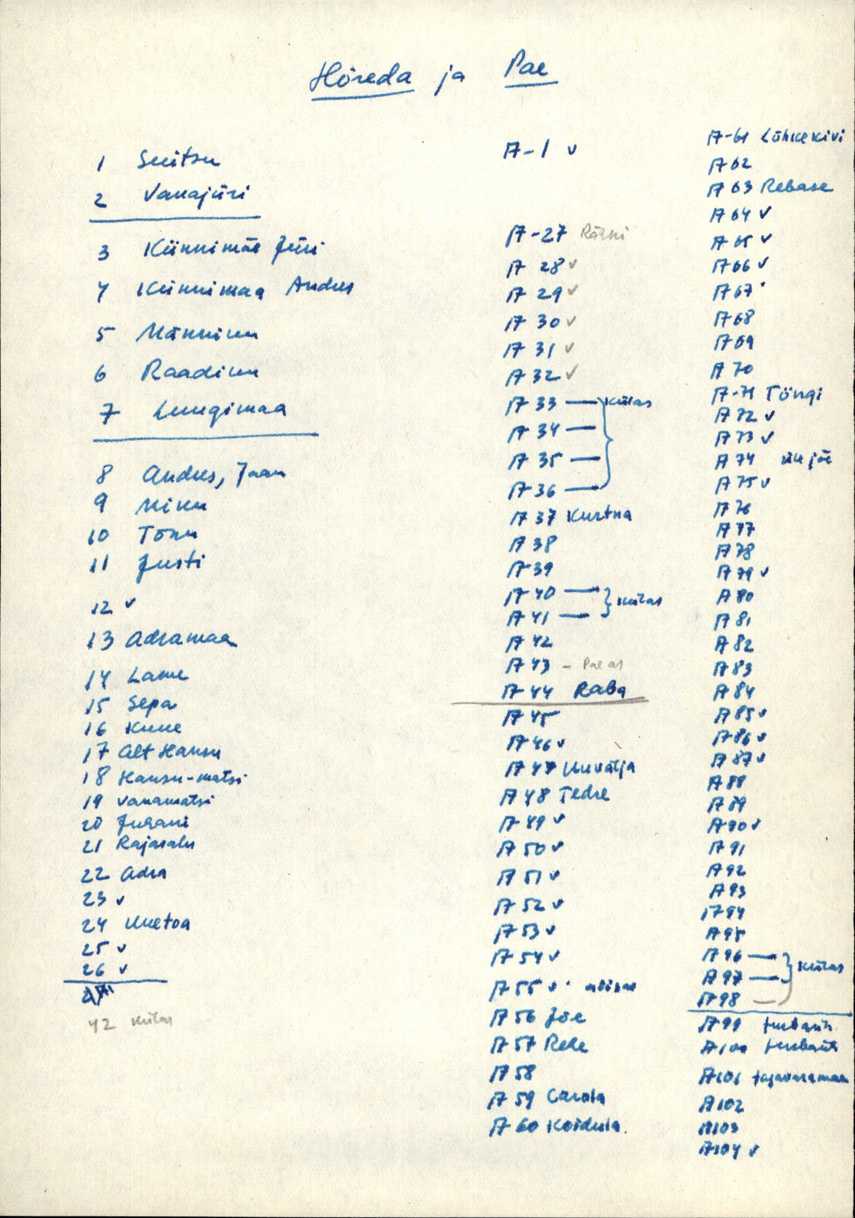 Hõreda ja Pae
1 Suitsu
2 Vanajüri
3 Künnimäe Jüri
4 Künnimaa Andres
5 Männinu
6 Raadinu
7 Lungimaa
8 Andres, Jaan
9 Ninu
10 Tõnu
11 Justi
12 v
13 Adramaa
14 Lane
15 Sepa
16 Kune
17 Alt Hansu
18 Hansu-matsi
19 Vanamatsi
20 Juhani
21 Rajasalu
22 Adra
23 v
24 Uuetoa
25 v
26 v
42 külas
A-1 v
A-27
A 28 v
A 29 v
A 30 v
A 31 v
A 32 v
A 33 — külas
A 34 —
A 35 —
A 36 —
A 37 Kurtna
A 38
A 39
A 40 — } külas
A 41 —
A 42
A 43 - Paeas
A 44 Raba
A 45
A 46 v
A 47 Uuvälja
A 48 Tedre
A 49 v
A 50 v
A 51 v
A 52 v
A 53 v
A 54 v
A 55 v
A 56 Jõe
A 57 Rehe
A 58
A 59 Carola
A 60 Koidula
A-61 Lõhkekivi
A 62
A 63 Rebase
A 64 v
A 65 v
A 66 v
A 67
A 68
A 69
A 70
A-71 Tõngi
A 72 v
A 73 v
A 74 ülejõe
A 75 v
A 76
A 77
A 78
A 79 v
A 80
A 81
A 82
A 83
A 84
A 85 v
A 86 v
A 87 v
A 88
A 89
A 90 v
A 91
A 92
A 93
A 94
A 95
A 96 — } külas
A 97 —
A 98 —
A 99
A 100
A 101
A 102
A 103
A 104 v